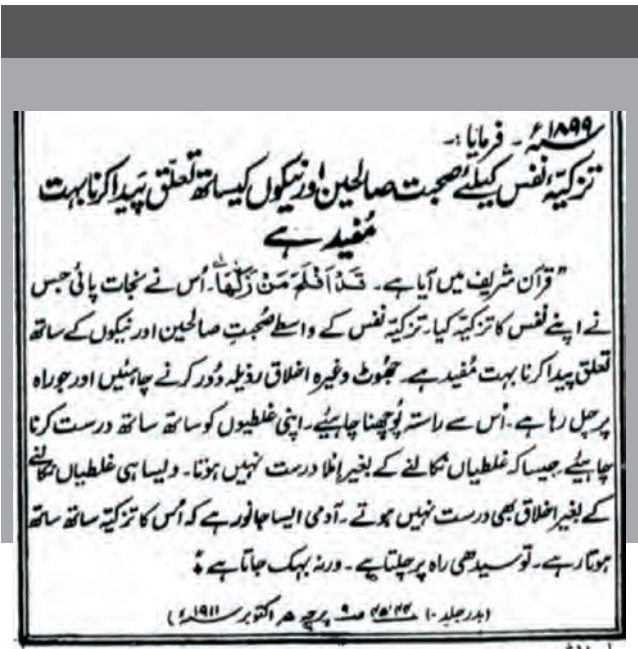 ۱۸۹۹ء۔ فرمایا:۔
تزکیۂ نفس کیلئے صحبت صالحین اور نیکوں کیساتھ تعلّق پَیدا کرنا بہت
مُفید ہے
"قرآن شریف میں آیا ہے۔ قَدْ اَفْلَحَ مَنْ زَكّٰىهَا۔ اُس نے نجات پائی جس
نے اپنے نفس کا تزکیّہ کیا۔ تزکیّہ نفس کے واسطے صُحبتِ صالحین اور نیکوں کے ساتھ
تعلق پیدا کرنا بہت مُفید ہے۔ جھُوٹ وغیرہ اخلاق رذیلہ دُور کرنے چاہئیں اور جو راہ
پر چل رہا ہے۔ اُس سے راستہ پُوچھنا چاہیئے۔ اپنی غلطیوں کو ساتھ ساتھ درست کرنا
چاہیئے۔ جیسا کہ غلطیاں نکالنے کے بغیر املا درست نہیں ہوتا۔ ویسا ہی غلطیاں نکالنے
کے بغیر اخلاق بھی درست نہیں ہوتے۔ آدمی ایسا جانور ہے کہ اُس کا تزکیّہ ساتھ ساتھ
ہوتا رہے۔ تو سیدھی راہ پر چلتا ہے۔ ورنہ بہک جاتا ہے
(بدر جلد ۱۰ ۴۴، ۴۵ صہ ۹ پرچہ ۵ اکتوبر ۱۹۱۱ء)